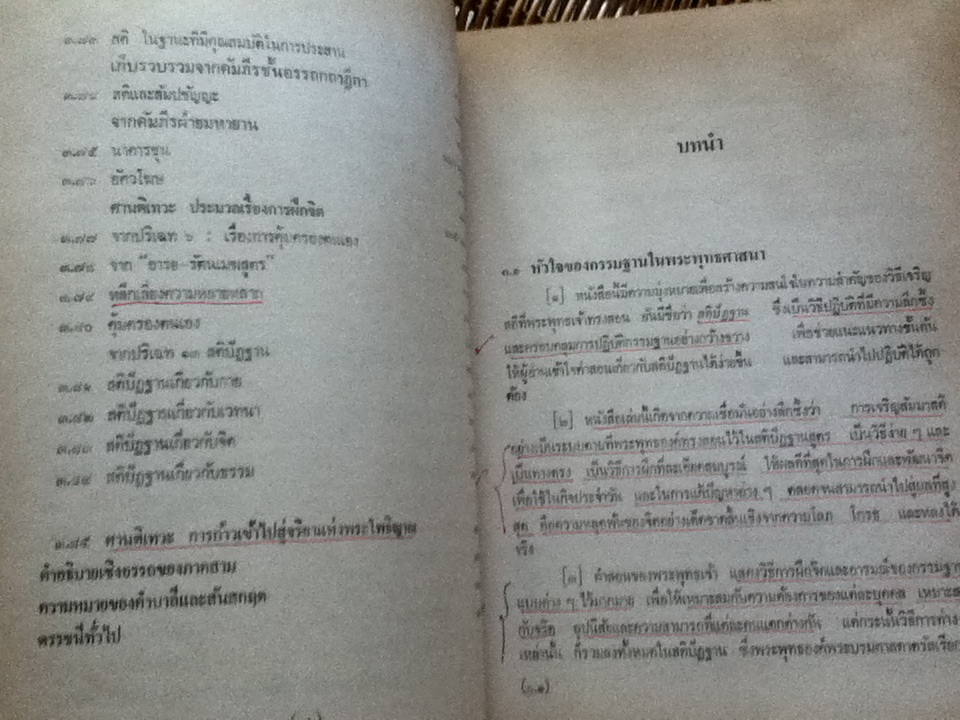 ๓.๗๓ สติ ในฐานะที่มีคุณสมบัติในการประสาน
เก็บรวบรวมจากคัมภีร์ชั้นอรรถกถาฎีกา
๓.๗๔ สติและสัมปชัญญะ
จากคัมภีร์ฝ่ายมหายาน
๓.๗๕ นาคารชุน
๓.๗๖ อัศวโฆษ
ศานติเทวะ ประมวลเรื่องการฝึกจิต
๓.๗๗ จากปริเฉท ๖ : เรื่องการคุ้มครองตนเอง
๓.๗๘ จาก "อารย-รัตนเมฆสูตร"
๓.๗๙ หลีกเลี่ยงความหลายหลาก
๓.๘๐ คุ้มครองตนเอง
จากปริเฉท ๑๓ สติปัฏฐาน
๓.๘๑ สติปัฏฐานเกี่ยวกับกาย
๓.๘๒ สติปัฏฐานเกี่ยวกับเวทนา
๓.๘๓ สติปัฏฐานเกี่ยวกับจิต
๓.๘๔ สติปัฏฐานเกี่ยวกับธรรม
๓.๘๕ ศานติเทวะ การก้าวเข้าไปสู่จริยาแห่งพระโพธิญาณ
คำอธิบายเชิงอรรถของภาคสาม
ความหมายของคำบาลีและสันสกฤต
ดรรชนีทั่วไป
บทนำ
๑.๑ หัวใจของกรรมฐานในพระพุทธศาสนา
[๑] หนังสือนี้มีความมุ่งหมายเพื่อสร้างความสนใจในความสำคัญของวิธีเจริญ
สติที่พระพุทธเจ้าทรงสอน อันมีชื่อว่า สติปัฏฐาน ซึ่งเป็นวิธีปฏิบัติที่มีความลึกซึ้ง
และครอบคลุมการปฏิบัติกรรมฐานอย่างกว้างขวาง เพื่อช่วยแนะแนวทางขั้นต้น
ให้ผู้อ่านเข้าใจคำสอนเกี่ยวกับสติปัฏฐานได้ง่ายขึ้น และสามารถนำไปปฏิบัติได้ถูก
ต้อง
[๒] หนังสือเล่มนี้เกิดจากความเชื่อมั่นอย่างลึกซึ้งว่า การเจริญสัมมาสติ
อย่างเป็นระบบตามที่พระพุทธองค์ทรงสอนไว้ในสติปัฏฐานสูตร เป็นวิธีง่าย ๆ และ
เป็นทางตรง เป็นวิธีการฝึกที่ละเอียดสมบูรณ์ ให้ผลดีที่สุดในการฝึกและพัฒนาจิต
เพื่อใช้ในกิจประจำวัน และในการแก้ปัญหาต่าง ๆ ตลอดจนสามารถนำไปสู่ผลที่สูง
สุด คือความหลุดพ้นของจิตอย่างเด็ดขาดสิ้นเชิงจากความโลภ โกรธ และหลงได้
จริง
[๓] คำสอนของพระพุทธเจ้า แสดงวิธีการฝึกจิตและอารมณ์ของกรรมฐาน
แบบต่าง ๆ ไว้มากมาย เพื่อให้เหมาะสมกับความต้องการของแต่ละบุคคล เหมาะส
กับจริต อุปนิสัยและความสามารถที่แต่ละคนแตกต่างกัน แต่กระนั้นวิธีการต่าง
เหล่านั้น ก็รวมลงทั้งหมดในสติปัฏฐาน ซึ่งพระพุทธองค์พระบรมศาสดาตรัสเรียก
(๑.๑)